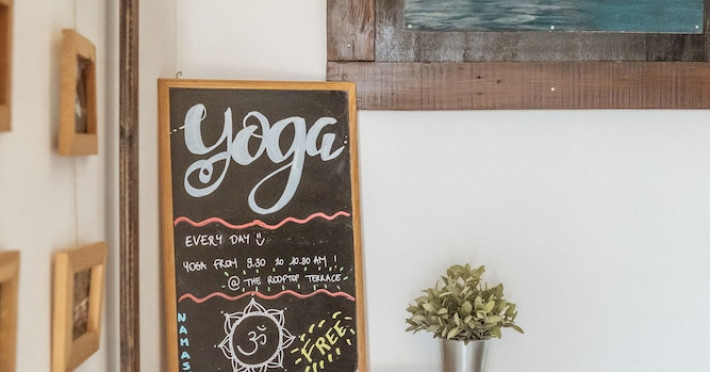 yoga
EVERY DAY
YOGA FROM 9.30 to 10.30 AM !
@ THE ROOFTOP TERRACE
NAMAS
ॐ
FREE